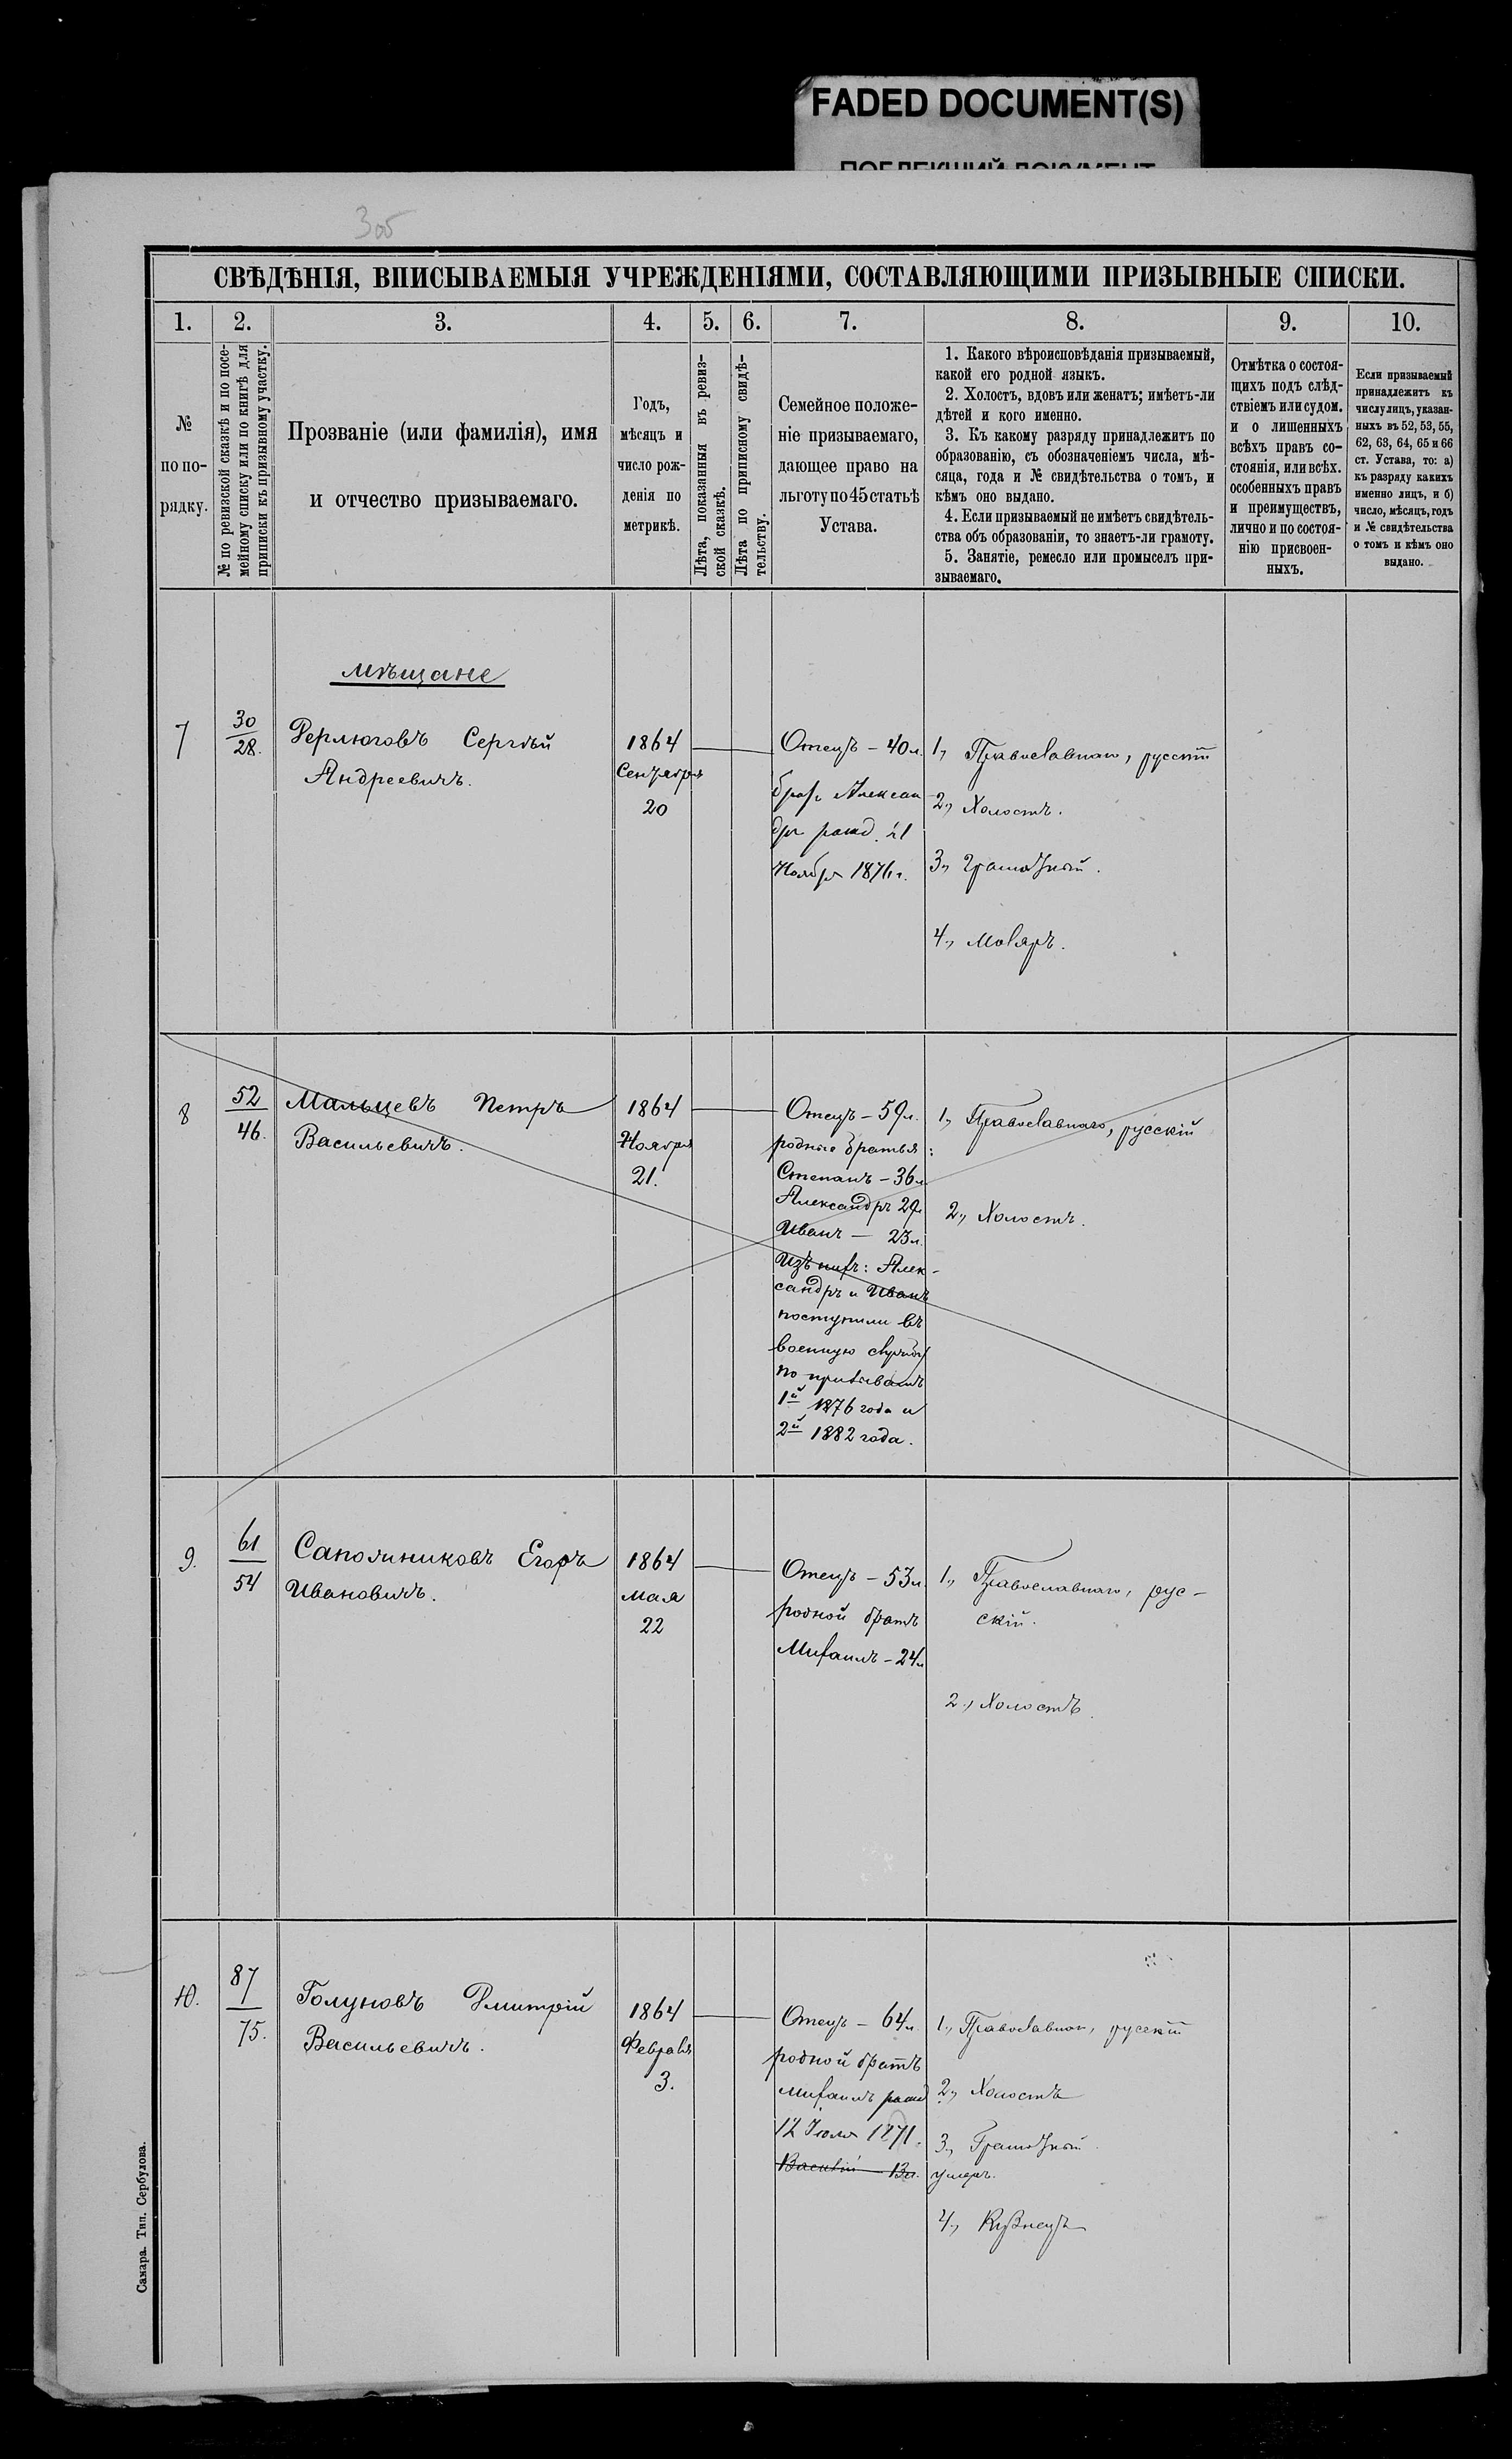 FADED DOCUMENT(S)
ПОБЛЕКШИЙ ДОКУМЕНТ
3об
СВѢДѢНІЯ, ВПИСЫВАЕМЫЯ УЧРЕЖДЕНІЯМИ, СОСТАВЛЯЮЩИМИ ПРИЗЫВНЫЕ СПИСКИ.
1.
2.
3.
4.
5.
6.
7.
8.
9.
10.
№
по по-
рядку.
№ по ревизской сказкѣ и по посе-
мейному списку или по книгѣ для
приписки къ призывному участку.
Прозваніе (или фамилія), имя
и отчество призываемаго.
Годъ,
мѣсяцъ и
число рож-
денія по
метрикѣ.
Лѣта, показанныя въ ревиз-
ской сказкѣ.
Лѣта по приписному свидѣ-
тельству.
Семейное положе-
ніе призываемаго,
дающее право на
льготу по 45 статьѣ
Устава.
1. Какого вѣроисповѣданія призываемый,
какой его родной языкъ.
2. Холостъ, вдовъ или женатъ; имѣетъ-ли
дѣтей и кого именно.
3. Къ какому разряду принадлежитъ по
образованію, съ обозначеніемъ числа, мѣ-
сяца, года и № свидѣтельства о томъ, и
кѣмъ оно выдано.
4. Если призываемый не имѣетъ свидѣтель-
ства объ образованіи, то знаетъ-ли грамоту.
5. Занятіе, ремесло или промыселъ при-
зываемаго.
Отмѣтка о состоя-
щихъ подъ слѣд-
ствіемъ или судом.
и о лишенныхъ
всѣхъ правъ со-
стоянія, или всѣх.
особенныхъ правъ
и преимуществъ,
лично и по состоя-
нію присвоен-
ныхъ.
Если призываемый
принадлежитъ къ
числу лицъ, указан-
ныхъ въ 52, 53, 55,
62, 63, 64, 65 и 66
ст. Устава, то: а)
къ разряду какихъ
именно лицъ, и б)
число, мѣсяцъ, годъ
и № свидѣтельства
о томъ и кѣмъ оно
выдано.
мѣщане
7
30
28.
Дерлюговъ Сергѣй
Андреевичъ.
1864
Сентября
20
Отецъ – 40 л.
братъ Алексан
дръ рожд. 21
Ноября 1876 г.
1, Православнаго, русскій
2, Холостъ.
3, Грамотный.
4, Маляръ.
8
52
46.
Мальцевъ Петръ
Васильевичъ.
1864
Ноября
21.
Отецъ – 59 л.
родные братья:
Степанъ – 36 л
Александръ 29 л
Иванъ — 23 л.
Изъ нихъ: Алек-
сандръ и Иванъ
поступили въ
военную службу
по призывамъ
1й 1876 года и
2й 1882 года.
1, Православнаго, русскій
2, Холостъ.
9.
61
54
Сапожниковъ Егоръ
Ивановичъ.
1864
мая
22
Отецъ – 53 л.
родной братъ
Михаилъ – 24 л
1, Православнаго, рус-
скій.
2, Холостъ.
10.
87
75.
Голуновъ Дмитрій
Васильевичъ.
1864
Февраля
3.
Отецъ – 64 л.
родной братъ
Михаилъ рожд
12 Іюля 1871.
Василій 13 л.
1, Православнаго, русскій
2, Холостъ
3, Грамотный.
умеръ.
4, Кузнецъ
Самара. Тип. Сербулова.